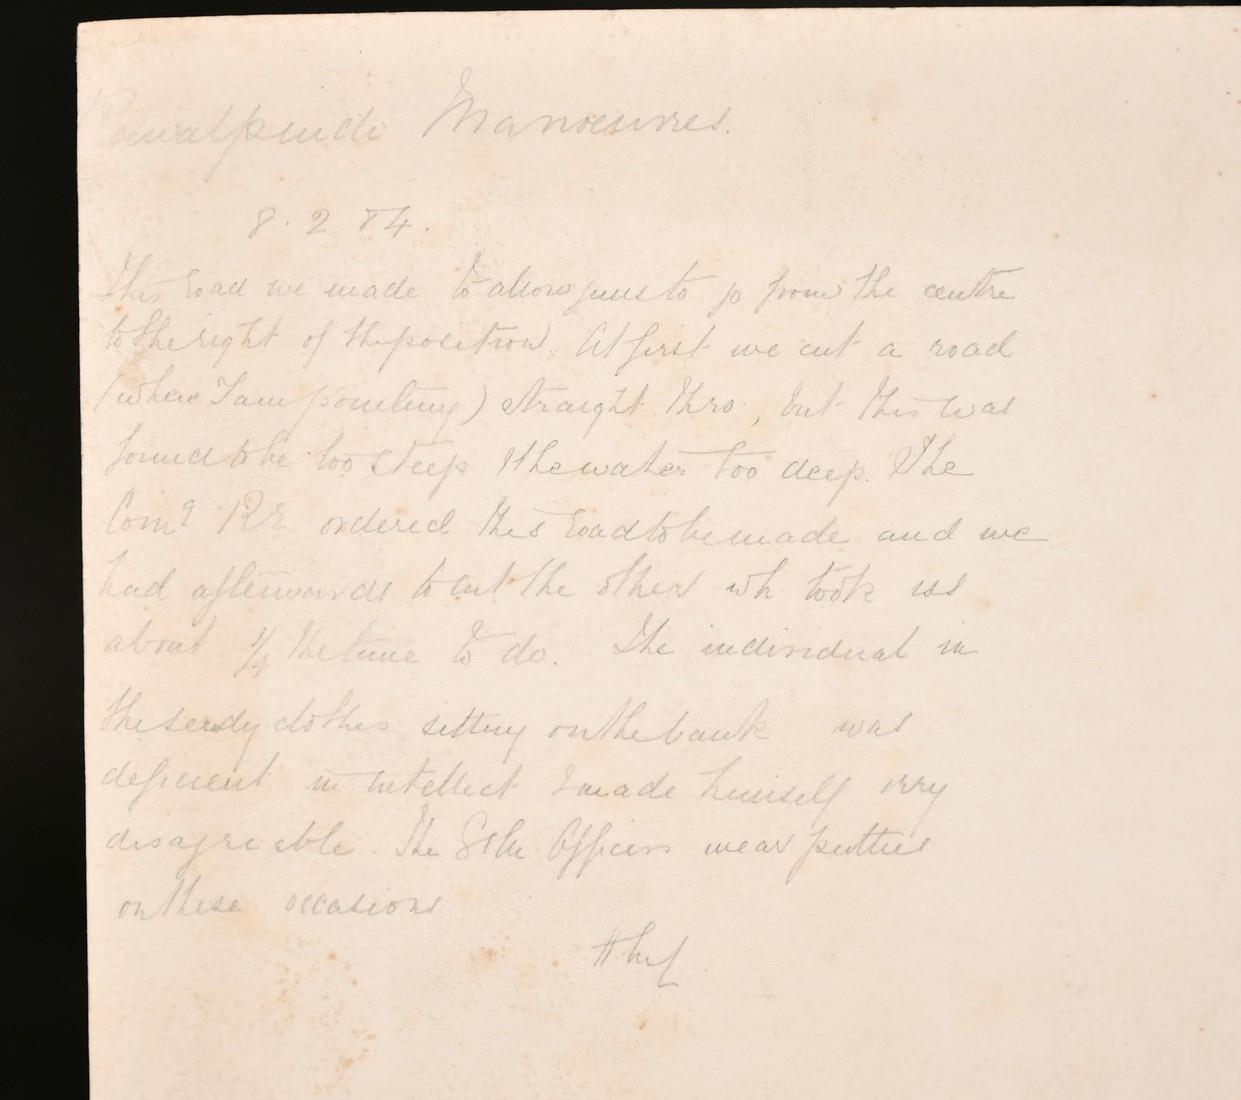 Rawalpindi Manoeuvres.
8. 2 84.
This road we made to allow guns to go from the centre
to the right of the position. At first we cut a road
(where I am pointing) straight thro, but this was
found to be too steep & the water too deep. The
Comg RE ordered this road to be made and we
had afterwards to cut the other wh took us
about 1/4 the time to do. The individual in
the seedy clothes sitting on the bank was
deficient in intellect & made himself very
disagreeable. The Officers wear putties
on these occasions